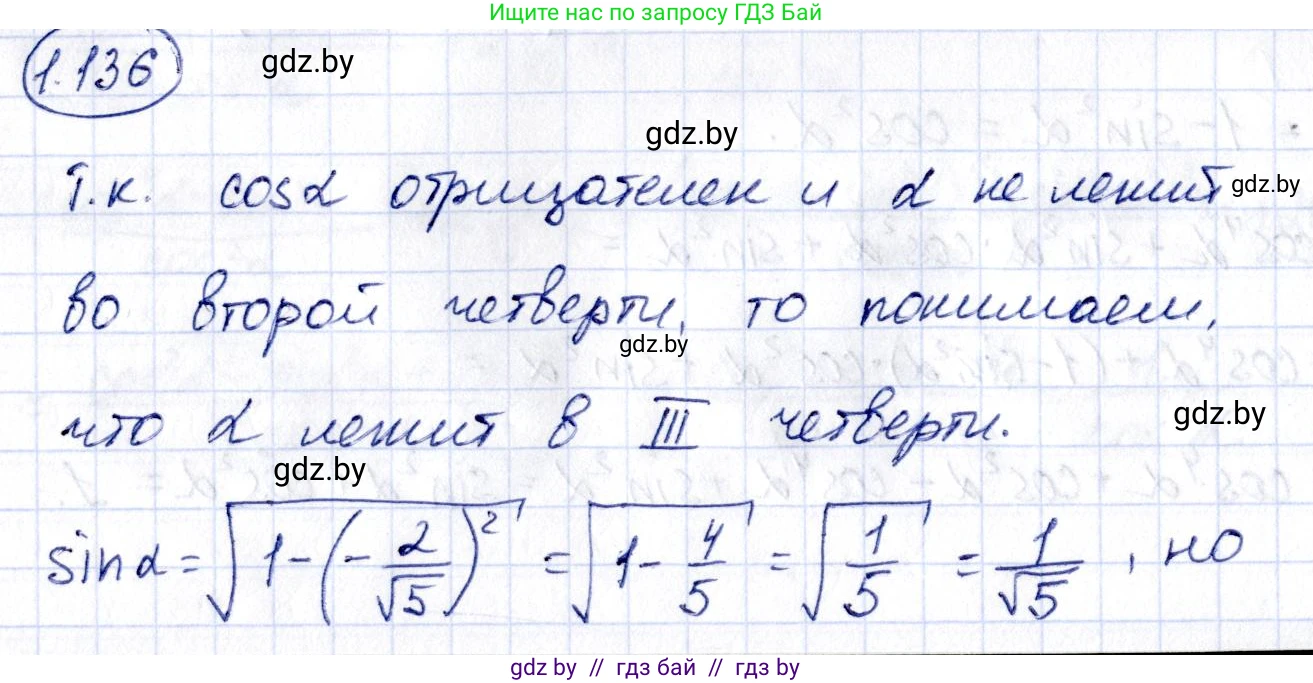 Ищите нас по запросу ГДЗ Бай
1.136
gdz.by
gdz.by
Т.к. cosα отрицателен и α не лежит
gdz.by
во второй четверти, то понимаем,
gdz.by
что α лежит в III четверти.
gdz.by
gdz.by
sinα = √(1-(-2/√5)²) = √(1-4/5) = √(1/5) = 1/√5, но
gdz.by // гдз бай // гдз by